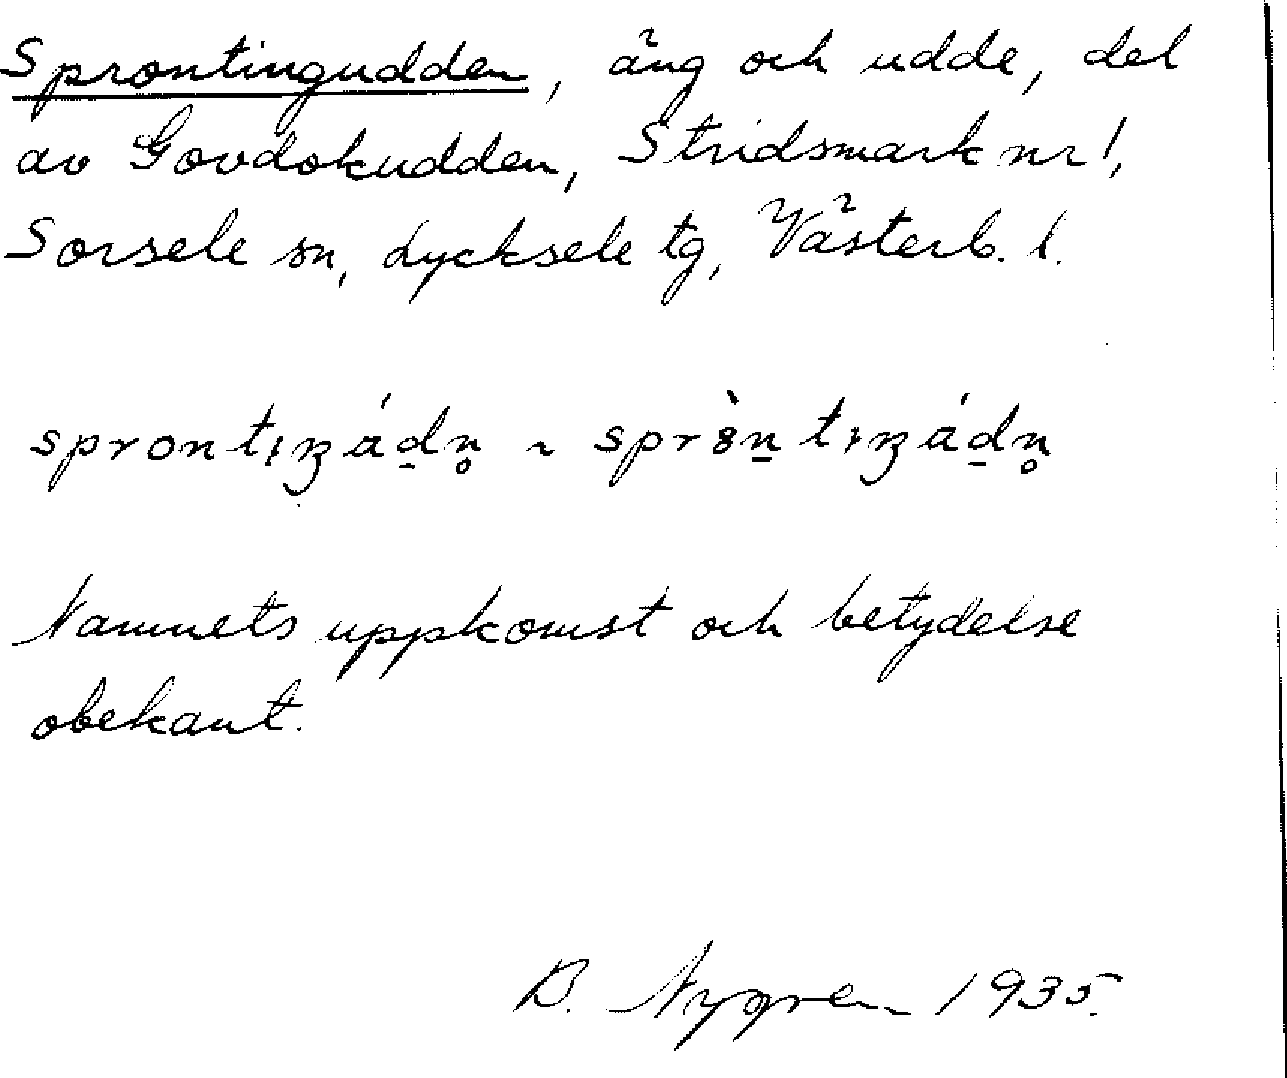 Sprontingudden, äng och udde, del
av Govdokudden, Stridsmark nr 1,
Sorsele sn, Lycksele tg, Västerb. l.
sprontıŋádn̥ ~ spròn̠tıŋád̠n̥
Namnets uppkomst och betydelse
obekant.
B. Nygren 1935.